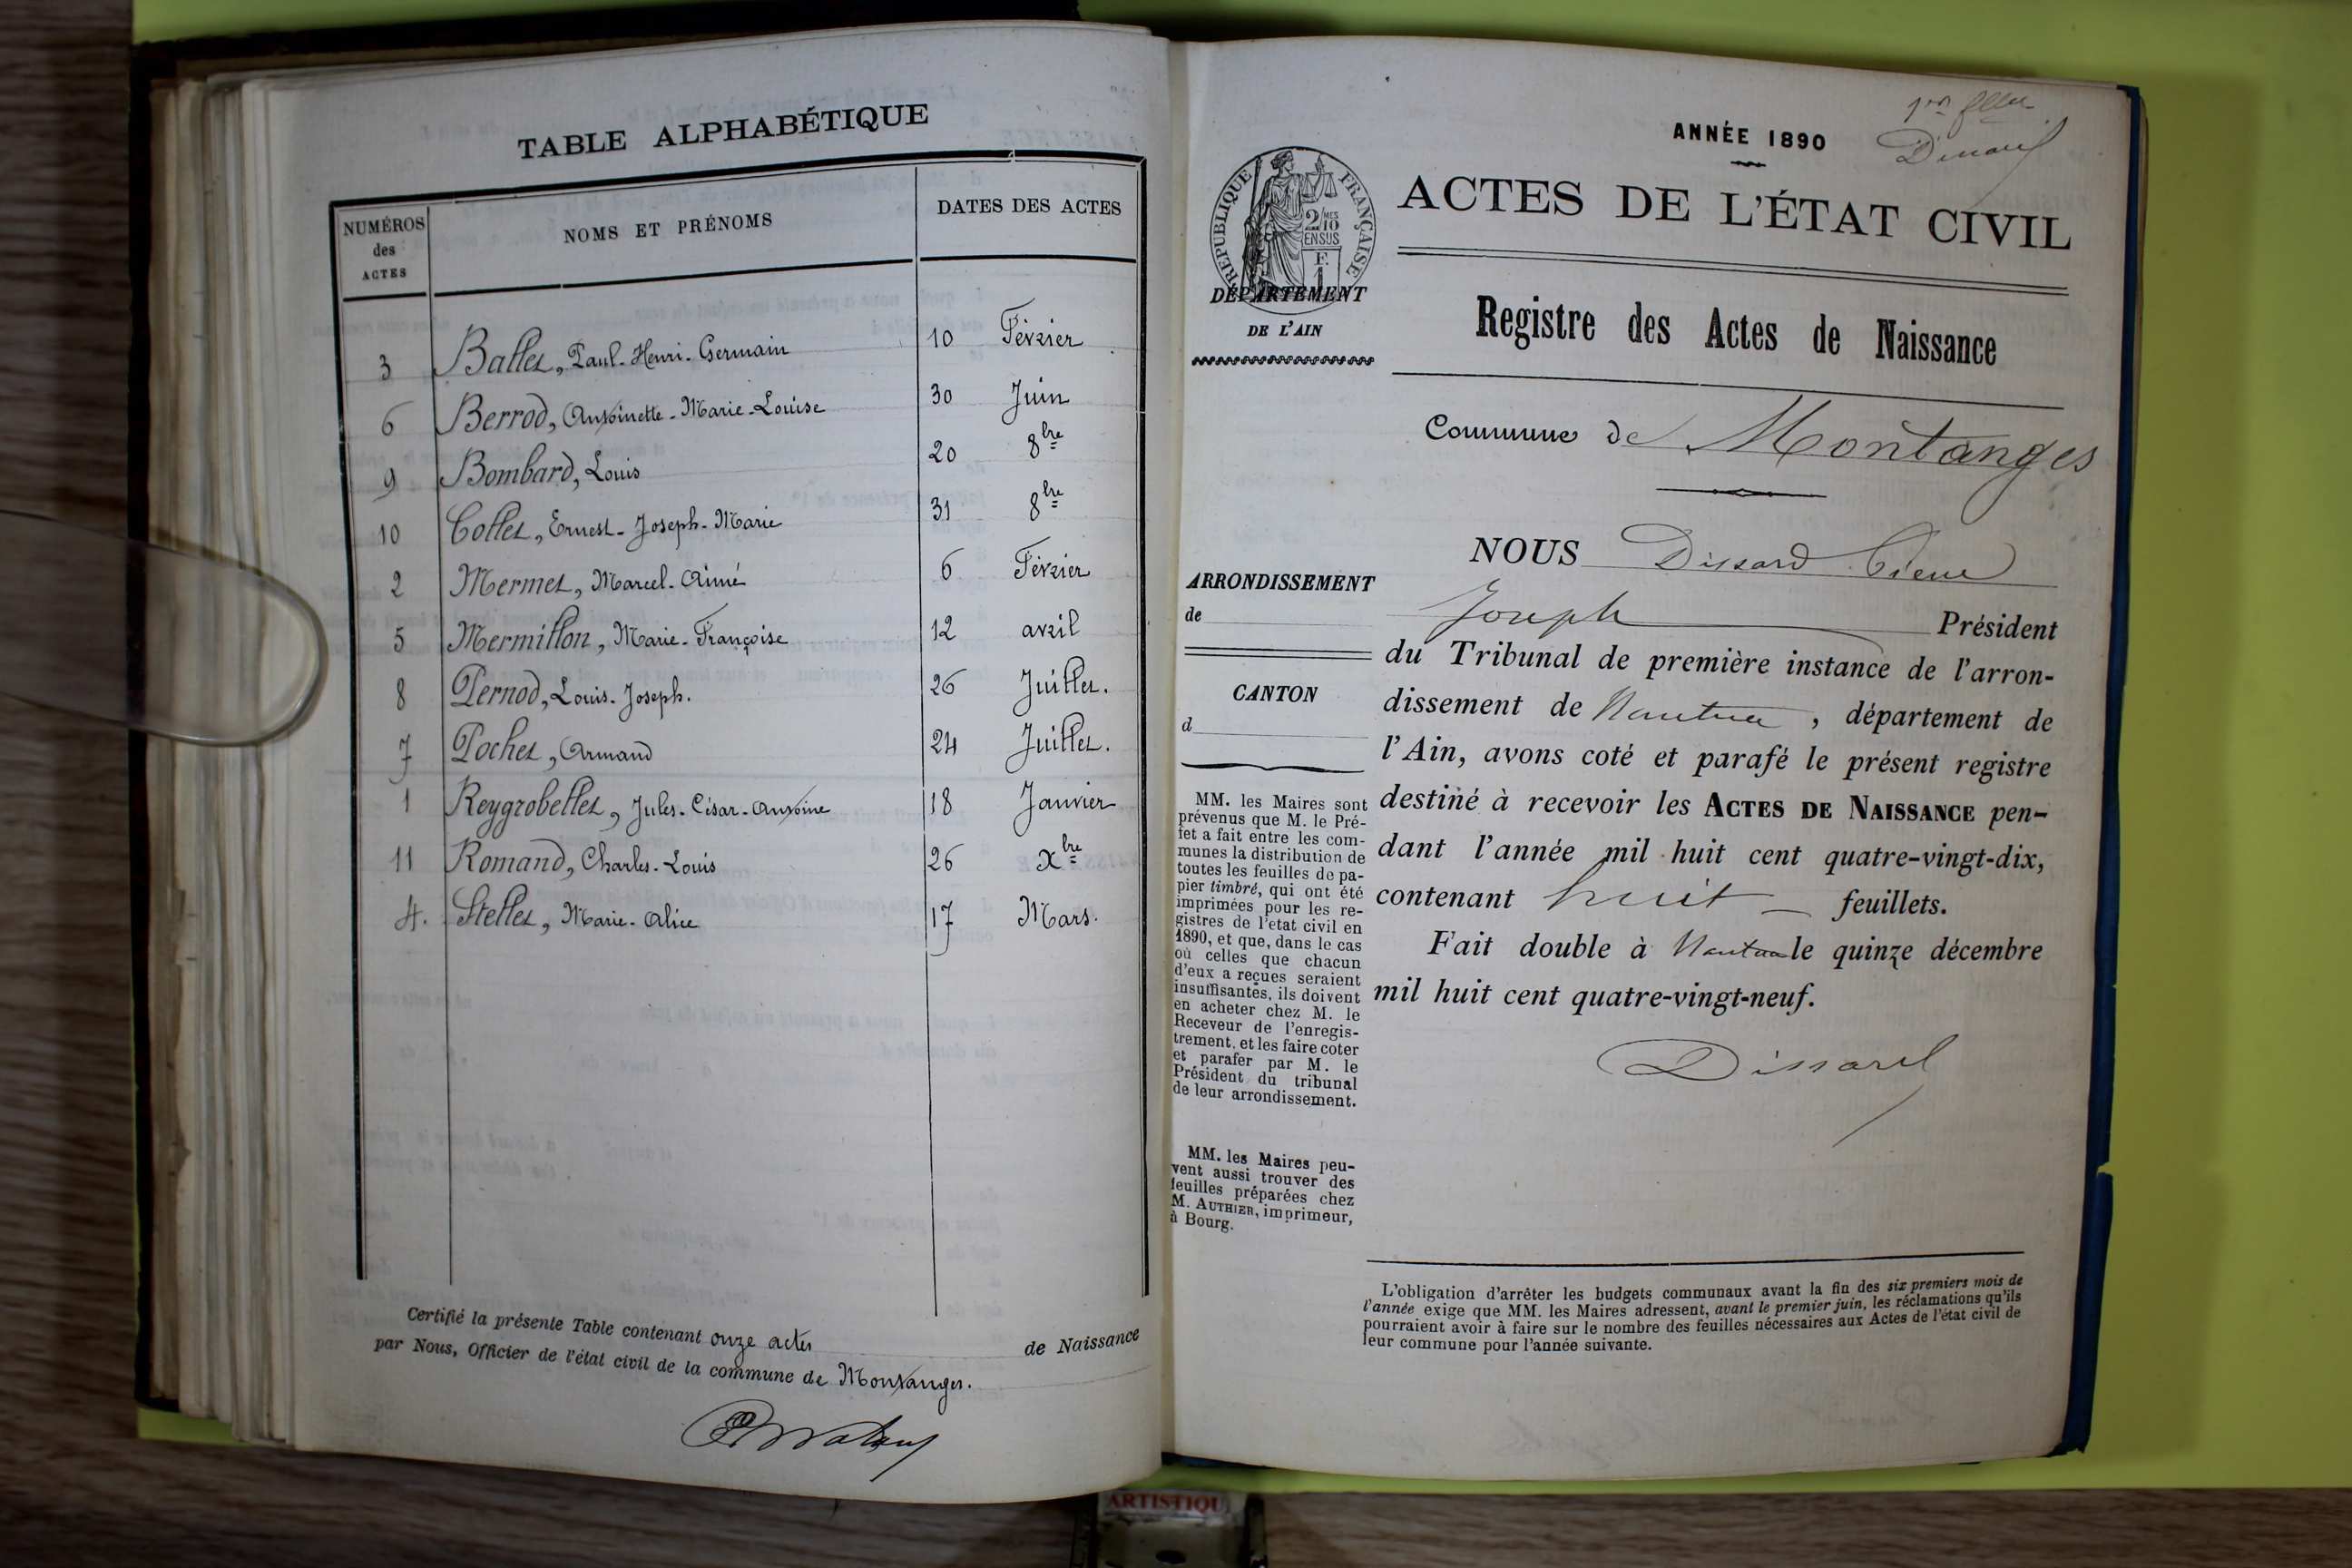 TABLE ALPHABÉTIQUE
NUMÉROS des ACTES
NOMS ET PRÉNOMS
DATES DES ACTES
3 Ballet, Paul-Henri-Germain 10 Février
6 Berrod, Antoinette-Marie-Louise 30 Juin
9 Bombard, Louis 20 8bre
10 Collet, Ernest-Joseph-Marie 31 8bre
2 Mermet, Marcel-Aimé 6 Février
5 Mermillon, Marie-Françoise 12 avril
8 Pernod, Louis-Joseph. 26 Juillet.
7 Pochet, Armand 24 Juillet.
1 Reygrobellet, Jules-César-Antoine 18 Janvier
11 Romand, Charles-Louis 26 Xbre
4. Stellet, Marie-Alice 17 Mars.
Certifié la présente Table contenant onze actes de Naissance
par Nous, Officier de l'état civil de la commune de Montanges.
ANNÉE 1890
1er
RÉPUBLIQUE FRANÇAISE
2/10 MES
EN SUS
F.
1
DÉPARTEMENT
DE L'AIN
ACTES DE L'ÉTAT CIVIL
Registre des Actes de Naissance
Commune de Montanges
ARRONDISSEMENT
de
CANTON
d
MM. les Maires sont
prévenus que M. le Pré-
fet a fait entre les com-
munes la distribution de
toutes les feuilles de pa-
pier timbré, qui ont été
imprimées pour les re-
gistres de l'etat civil en
1890, et que, dans le cas
où celles que chacun
d'eux a reçues seraient
insuffisantes, ils doivent
en acheter chez M. le
Receveur de l'enregis-
trement, et les faire coter
et parafer par M. le
Président du tribunal
de leur arrondissement.
MM. les Maires peu-
vent aussi trouver des
feuilles préparées chez
M. AUTHIER, imprimeur,
à Bourg.
NOUS Dissard
Joseph Président
du Tribunal de première instance de l'arron-
dissement de Nantua, département de
l'Ain, avons coté et parafé le présent registre
destiné à recevoir les ACTES DE NAISSANCE pen-
dant l'année mil huit cent quatre-vingt-dix,
contenant huit feuillets.
Fait double à Nantua le quinze décembre
mil huit cent quatre-vingt-neuf.
Dissard
L'obligation d'arrêter les budgets communaux avant la fin des six premiers mois de
l'année exige que MM. les Maires adressent, avant le premier juin, les réclamations qu'ils
pourraient avoir à faire sur le nombre des feuilles nécessaires aux Actes de l'état civil de
leur commune pour l'année suivante.
ARTISTIQU